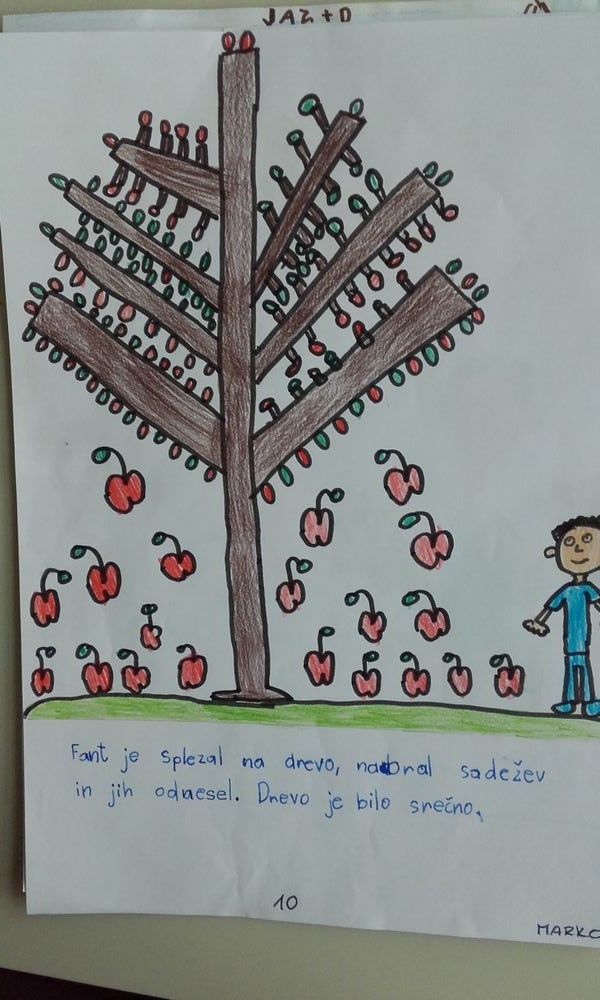 JAZ + D
Fant je splezal na drevo, nabral sadežev
in jih odnesel. Drevo je bilo srečno.
10
MARKO